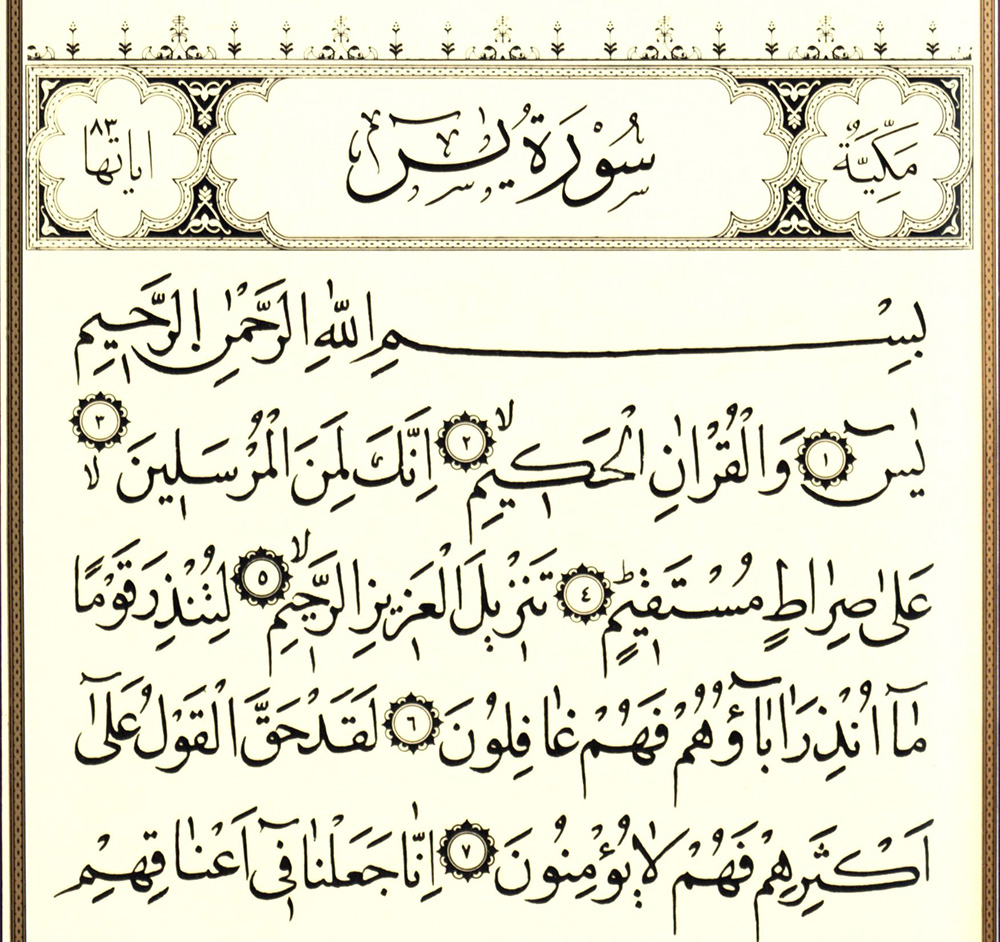 مَكِّيَّةٌ
سُوْرَةُ يٰسٓ
اياتها ٨٣
بِسْمِ اللّٰهِ الرَّحْمٰنِ الرَّحٖيمِ
يٰسٓ ﴿١﴾ وَالْقُرْاٰنِ الْحَكٖيمِ ﴿٢﴾ۙ اِنَّكَ لَمِنَ الْمُرْسَلٖينَ ﴿٣﴾ۙ
عَلٰى صِرَاطٍ مُسْتَقٖيمٍ ﴿٤﴾ؕ تَنْزٖيلَ الْعَزٖيزِ الرَّحٖيمِ ﴿٥﴾ۙ لِتُنْذِرَ قَوْمًا
مَٓا اُنْذِرَ اٰبَٓاؤُ۬هُمْ فَهُمْ غَافِلُونَ ﴿٦﴾ لَقَدْ حَقَّ الْقَوْلُ عَلٰٓى
اَكْثَرِهِمْ فَهُمْ لَا يُؤْمِنُونَ ﴿٧﴾ اِنَّا جَعَلْنَا فٖٓي اَعْنَاقِهِمْ